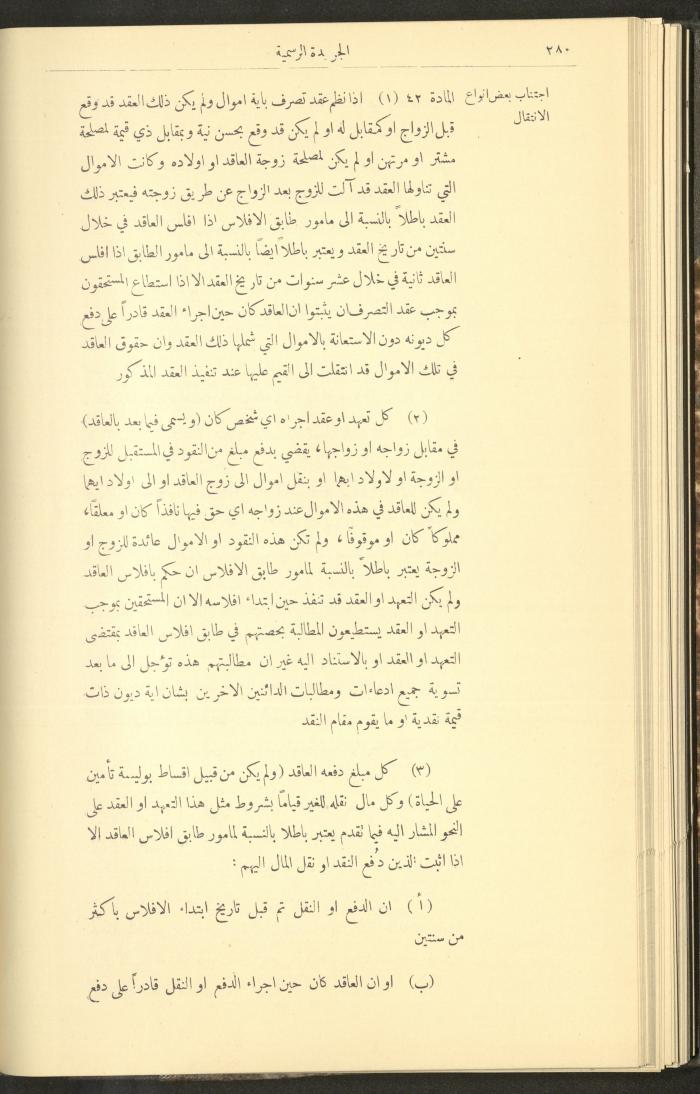 ٢٨٠
الجريدة الرسمية
اجتناب بعض انواع
الانتقال
المادة ٤٢ (١) اذا نظم عقد تصرف باية اموال ولم يكن ذلك العقد قد وقع
قبل الزواج او كمقابل له او لم يكن قد وقع بحسن نية وبمقابل ذي قيمة لمصلحة
مشتر او مرتهن او لم يكن لمصلحة زوجة العاقد او اولاده وكانت الاموال
التي تناولها العقد قد آلت للزوج بعد الزواج عن طريق زوجته فيعتبر ذلك
العقد باطلاً بالنسبة الى مامور طابق الافلاس اذا افلس العاقد في خلال
سنتين من تاريخ العقد ويعتبر باطلاً ايضاً بالنسبة الى مامور الطابق اذا افلس
العاقد ثانية في خلال عشر سنوات من تاريخ العقد الا اذا استطاع المستحقون
بموجب عقد التصرف ان يثبتوا ان العاقد كان حين اجراء العقد قادراً على دفع
كل ديونه دون الاستعانة بالاموال التي شملها ذلك العقد وان حقوق العاقد
في تلك الاموال قد انتقلت الى القيم عليها عند تنفيذ العقد المذكور
(٢) كل تعهد او عقد اجراه اي شخص كان (ويسمى فيما بعد بالعاقد)
في مقابل زواجه او زواجها، يقضي بدفع مبلغ من النقود في المستقبل للزوج
او الزوجة او لاولاد ايهما او بنقل اموال الى زوج العاقد او الى اولاد ايهما
ولم يكن للعاقد في هذه الاموال عند زواجه اي حق فيها نافذاً كان او معلقاً،
مملوكاً كان او موقوفاً، ولم تكن هذه النقود او الاموال عائدة للزوج او
الزوجة يعتبر باطلاً بالنسبة لمامور طابق الافلاس ان حكم بافلاس العاقد
ولم يكن التعهد او العقد قد تنفذ حين ابتداء افلاسه الا ان المستحقين بموجب
التعهد او العقد يستطيعون المطالبة بحصتهم في طابق افلاس العاقد بمقتضى
التعهد او العقد او بالاستناد اليه غير ان مطالبتهم هذه تؤجل الى ما بعد
تسوية جميع ادعاءات ومطالبات الدائنين الاخرين بشان اية ديون ذات
قيمة نقدية او ما يقوم مقام النقد
(٣) كل مبلغ دفعه العاقد (ولم يكن من قبيل اقساط بوليسة تأمين
على الحياة) وكل مال نقله للغير قياماً بشروط مثل هذا التعهد او العقد على
النحو المشار اليه فيما تقدم يعتبر باطلا بالنسبة لمامور طابق افلاس العاقد الا
اذا اثبت الذين دُفع النقد او نقل المال اليهم:
(أ) ان الدفع او النقل تم قبل تاريخ ابتداء الافلاس باكثر
من سنتين
(ب) او ان العاقد كان حين اجراء الدفع او النقل قادراً على دفع